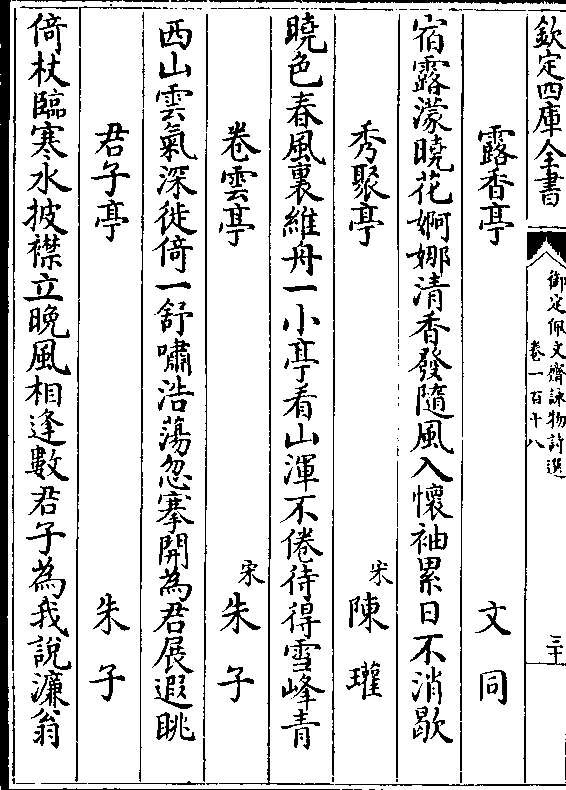 欽定四庫全書
御定佩文齋詠物詩選
卷一百十八
三十
露香亭 文同
宿露濛曉花婀娜清香發隨風入懷袖累日不消歇
秀聚亭 宋 陳瓘
曉色春風裏維舟一小亭看山渾不倦待得雪峰青
卷雲亭 宋 朱子
西山雲氣深徙倚一舒嘯浩蕩忽褰開為君展遐眺
君子亭 朱子
倚杖臨寒水披襟立晚風相逢數君子為我說濂翁